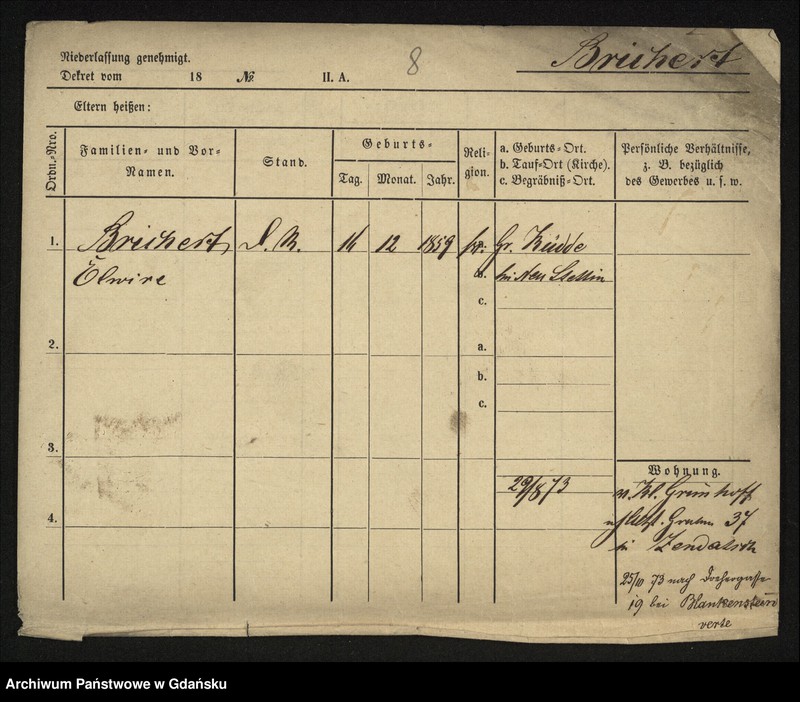 Niederlassung genehmigt.
Dekret vom 18 No. II. A.
8
Brichert
Eltern heißen:
Ordn.-Nro.
Familien- und Vor-Namen.
Stand.
Geburts-
Tag. Monat. Jahr.
Religion.
a. Geburts-Ort.
b. Tauf-Ort (Kirche).
c. Begräbniß-Ort.
Persönliche Verhältnisse,
z. B. bezüglich
des Gewerbes u. s. w.
1. Brichert, D. M. 16 12 1859 Gr. Küdde
Elwire b. bei Neu Stettin
c.
2. a.
b.
c.
3.
Wohnung.
29/8 73 v. Kl. Grünhoff
4. Graben 37
in
25/10 73 nach Drehergasse
19 bei Blankenstein
Archiwum Państwowe w Gdańsku